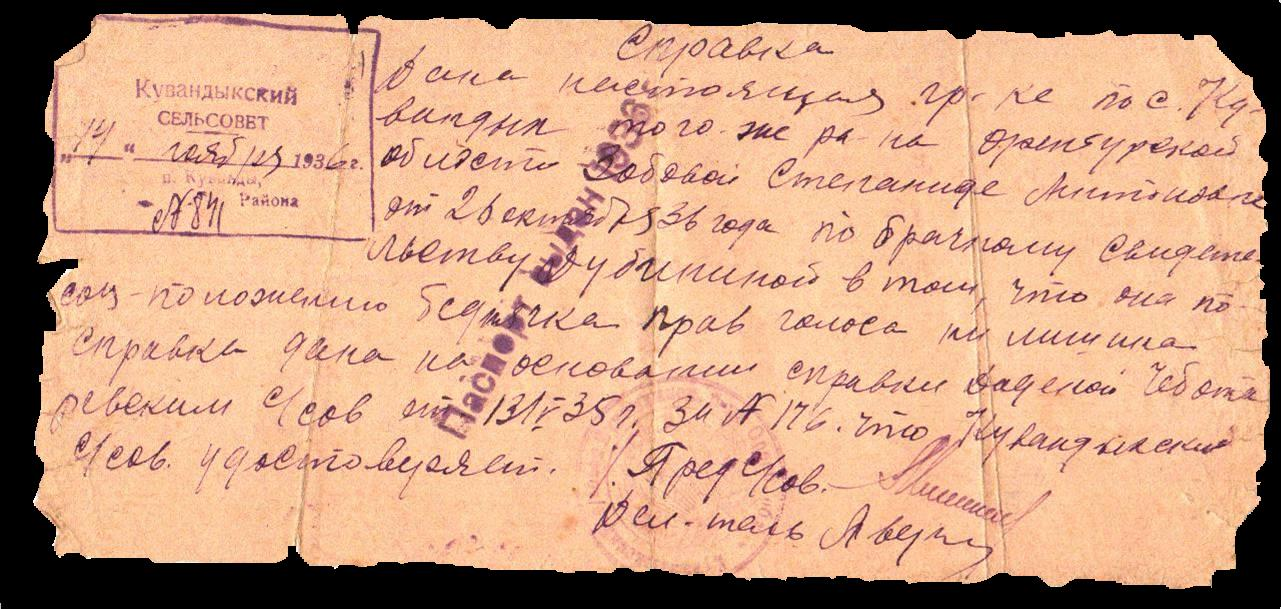 Кувандыкский
СЕЛЬСОВЕТ
"14" ноября 1936 г.
п. Куванды,
Района
№ 841
Справка
Дана настоящая гр-ке пос. Ку-
вандык того-же ра-на Оренбурской
области Бобовой Степаниде
от 26 октября 36 года по брачному свидете
льству Дубининой в том, что она по
соц-положению беднячка прав голоса ни лишина
Справка дана на основании справки даденой Чебота
ревским С/сов от 13/V 35 г. за № 176. что Кувандыкский
С/сов. удостоверяет.
Пред С/сов.
Дел-тель
Паспорт выдан 1936